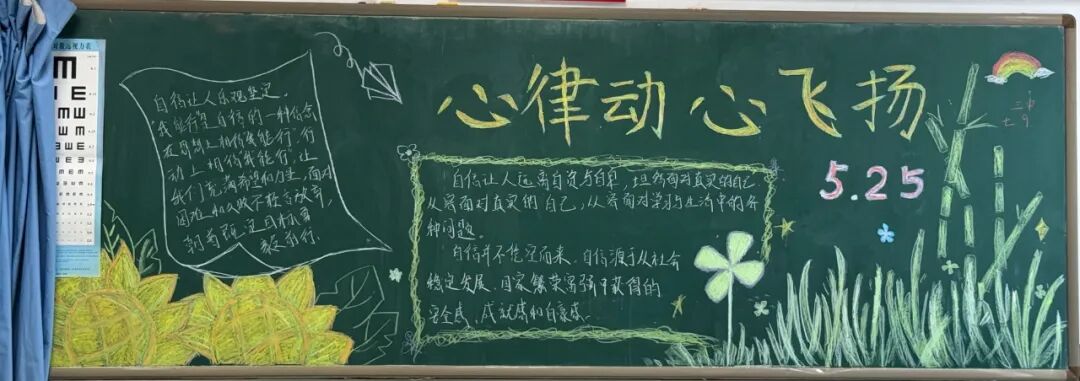 心律动 心飞扬
5.25
自信让人乐观坚定。
我能行是自信的一种信念
在思想上相信我能行,行
动上相信我能行,让
我们充满希望和力量,面对
困难和失败不轻言放弃,
朝着预定目标不
自信让人远离自责与自卑,坦然面对真实的自己,
从容面对真实的自己,从容面对学习与生活中的各
种问题。
自信并不凭空而来,自信源于从社会
稳定发展、国家繁荣富强中获得的
安全感、成就感和自豪感。
E